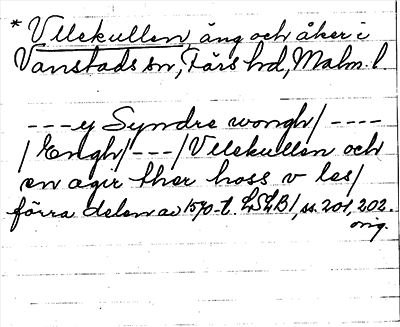 * Vllekullen, äng och åker i
Vanstads sn, Färs hd, Malm. l.
---- ey Syndre wongh/ ----
/Engh/ ---/Vllekullen och
en agir ther hoss v les/
förra delen av 1570-t. LSLB1, ss. 201, 202.
orig.